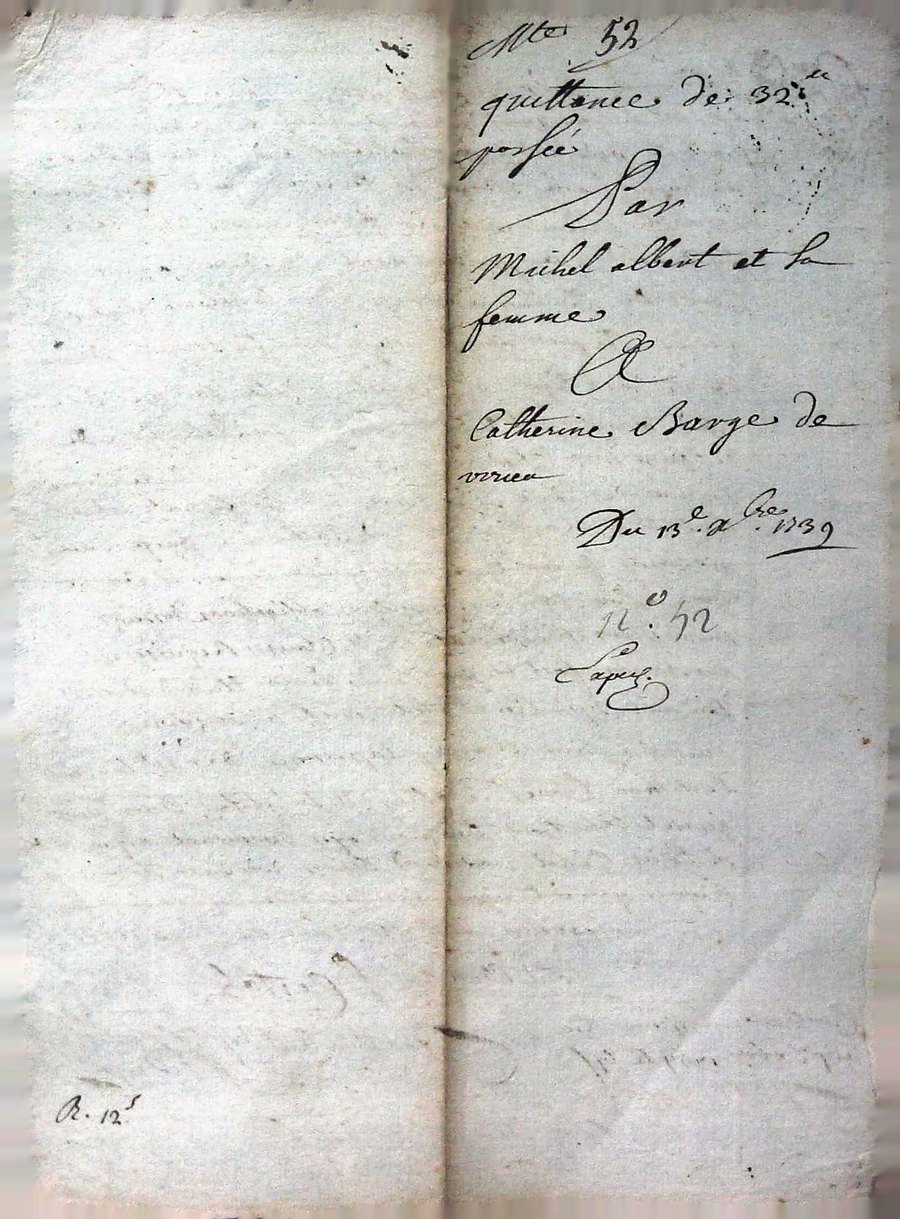 Mte 52
quittance de 32 ₶
passée
Par
Michel albert et sa
femme
A
Catherine Barge de
virieu
Du 13e. xbre. 1739
no. 52
R. 12s